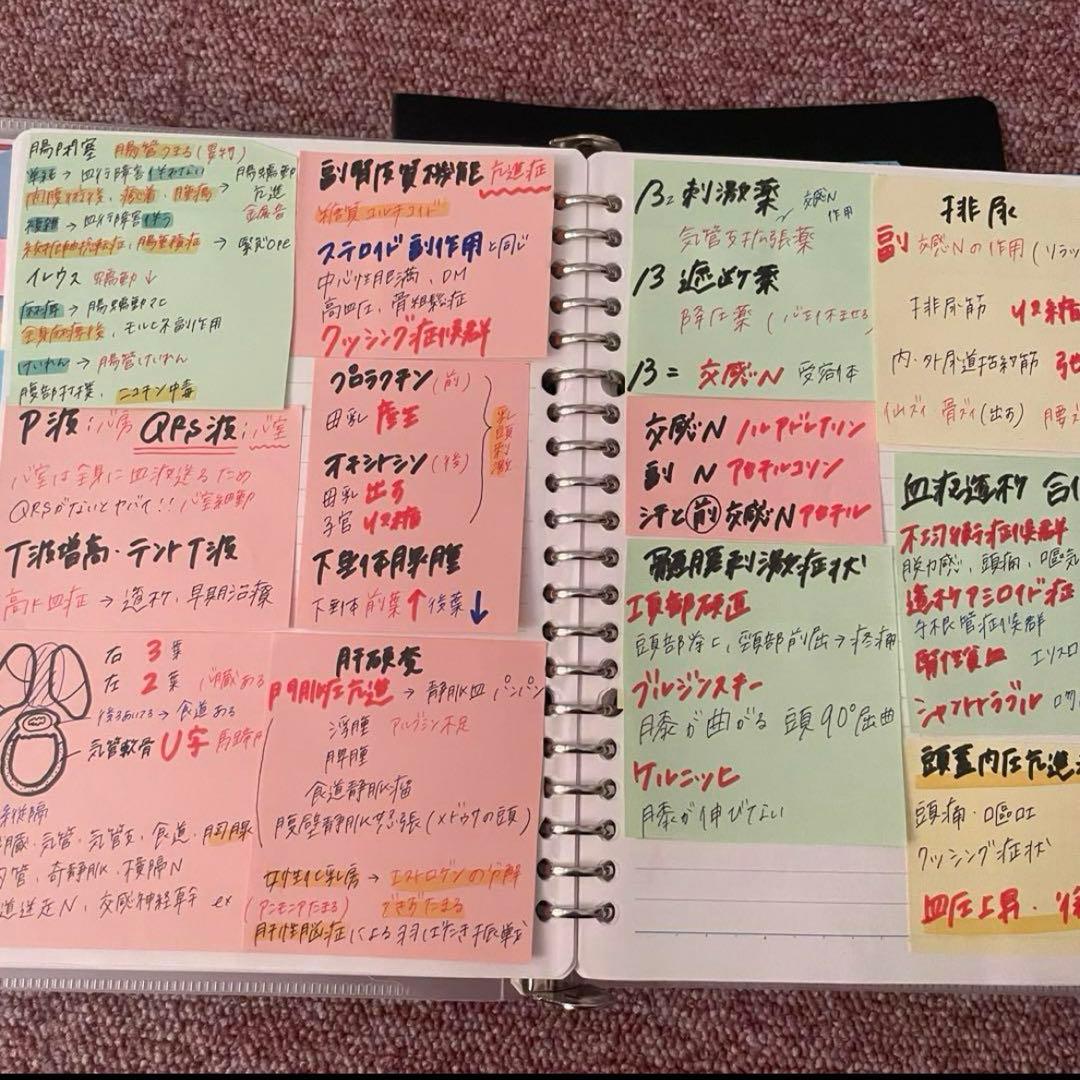 腸閉塞 腸管つまる(異物)
単純→血行障害伴わない
開腹術後、癒着、腫瘍→腸蠕動亢進
金属音
複雑→血行障害伴う
絞扼性
腸重積症→緊急OPE
イレウス 蠕動↓
麻痺→腸蠕動なく
全身麻酔後、モルヒネ副作用
けいれん→腸管けいれん
腹部打撲、ニコチン中毒
P波:心房 QRS波:心室
心室は全身に血液送るため
QRSがないとヤバイ!!心室細動
T波増高・テントT波
高K血症→透析、早期治療
右 3 葉
左 2 葉 心臓ある
後ろあいてる→食道ある
気管軟骨 U字 馬蹄形
縦隔
臓・気管・気管支、食道・胸腺
管、奇静脈、横隔N
道迷走N、交感神経幹 ex
副腎皮質機能亢進症
糖質コルチコイド
ステロイド副作用と同じ
中心性肥満、DM
高血圧、骨粗鬆症
クッシング症候群
プロラクチン(前)
母乳 産生
オキシトシン(後)
母乳 出す
子宮 収縮
乳頭刺激
下垂体
下垂体 前葉↑ 後葉↓
肝硬変
門脈圧亢進→静脈血パンパン
浮腫 アルブミン不足
脾腫
食道静脈瘤
腹壁静脈怒張(メドゥサの頭)
女性化乳房→エストロゲンの分解
(アンモニアたまる) できずたまる
肝性脳症による羽ばたき振戦
β2刺激薬 交感N作用
気管支拡張薬
β遮断薬
降圧薬(心臓休ませる
β=交感N 受容体
交感N ノルアドレナリン
副 N アセチルコリン
汗と前交感N アセチル
髄膜刺激症状
項部硬直
頭部
頸部前屈→疼痛
ブルジンスキー
膝が曲がる 頭90°屈曲
ケルニッヒ
膝が伸びない
排尿
副交感Nの作用(リラッ
排尿筋 収縮
内・外尿道括約筋 弛
仙ズイ 骨ズイ(出す) 腰ズ
血液透析 合
不均衡症候群
脱力感、頭痛、嘔気
透析アミロイド症
手根管症候群
腎性貧血 エリスロ
シャントトラブル
頭蓋内圧亢進
頭痛・嘔吐
クッシング症状
血圧上昇・徐